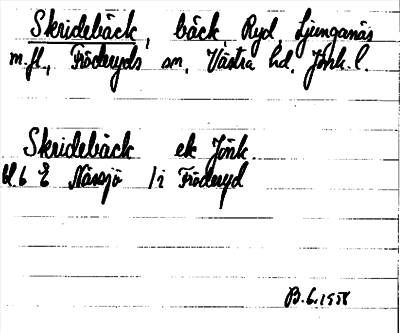 Skridebäck, bäck, Ryd, Ljunganäs
m.fl., Fröderyds sn, Västra hd, Jönk. l.
Skridebäck ek Jönk.
bl. 6 E Nässjö /i Fröderyd
B. 6. 1958